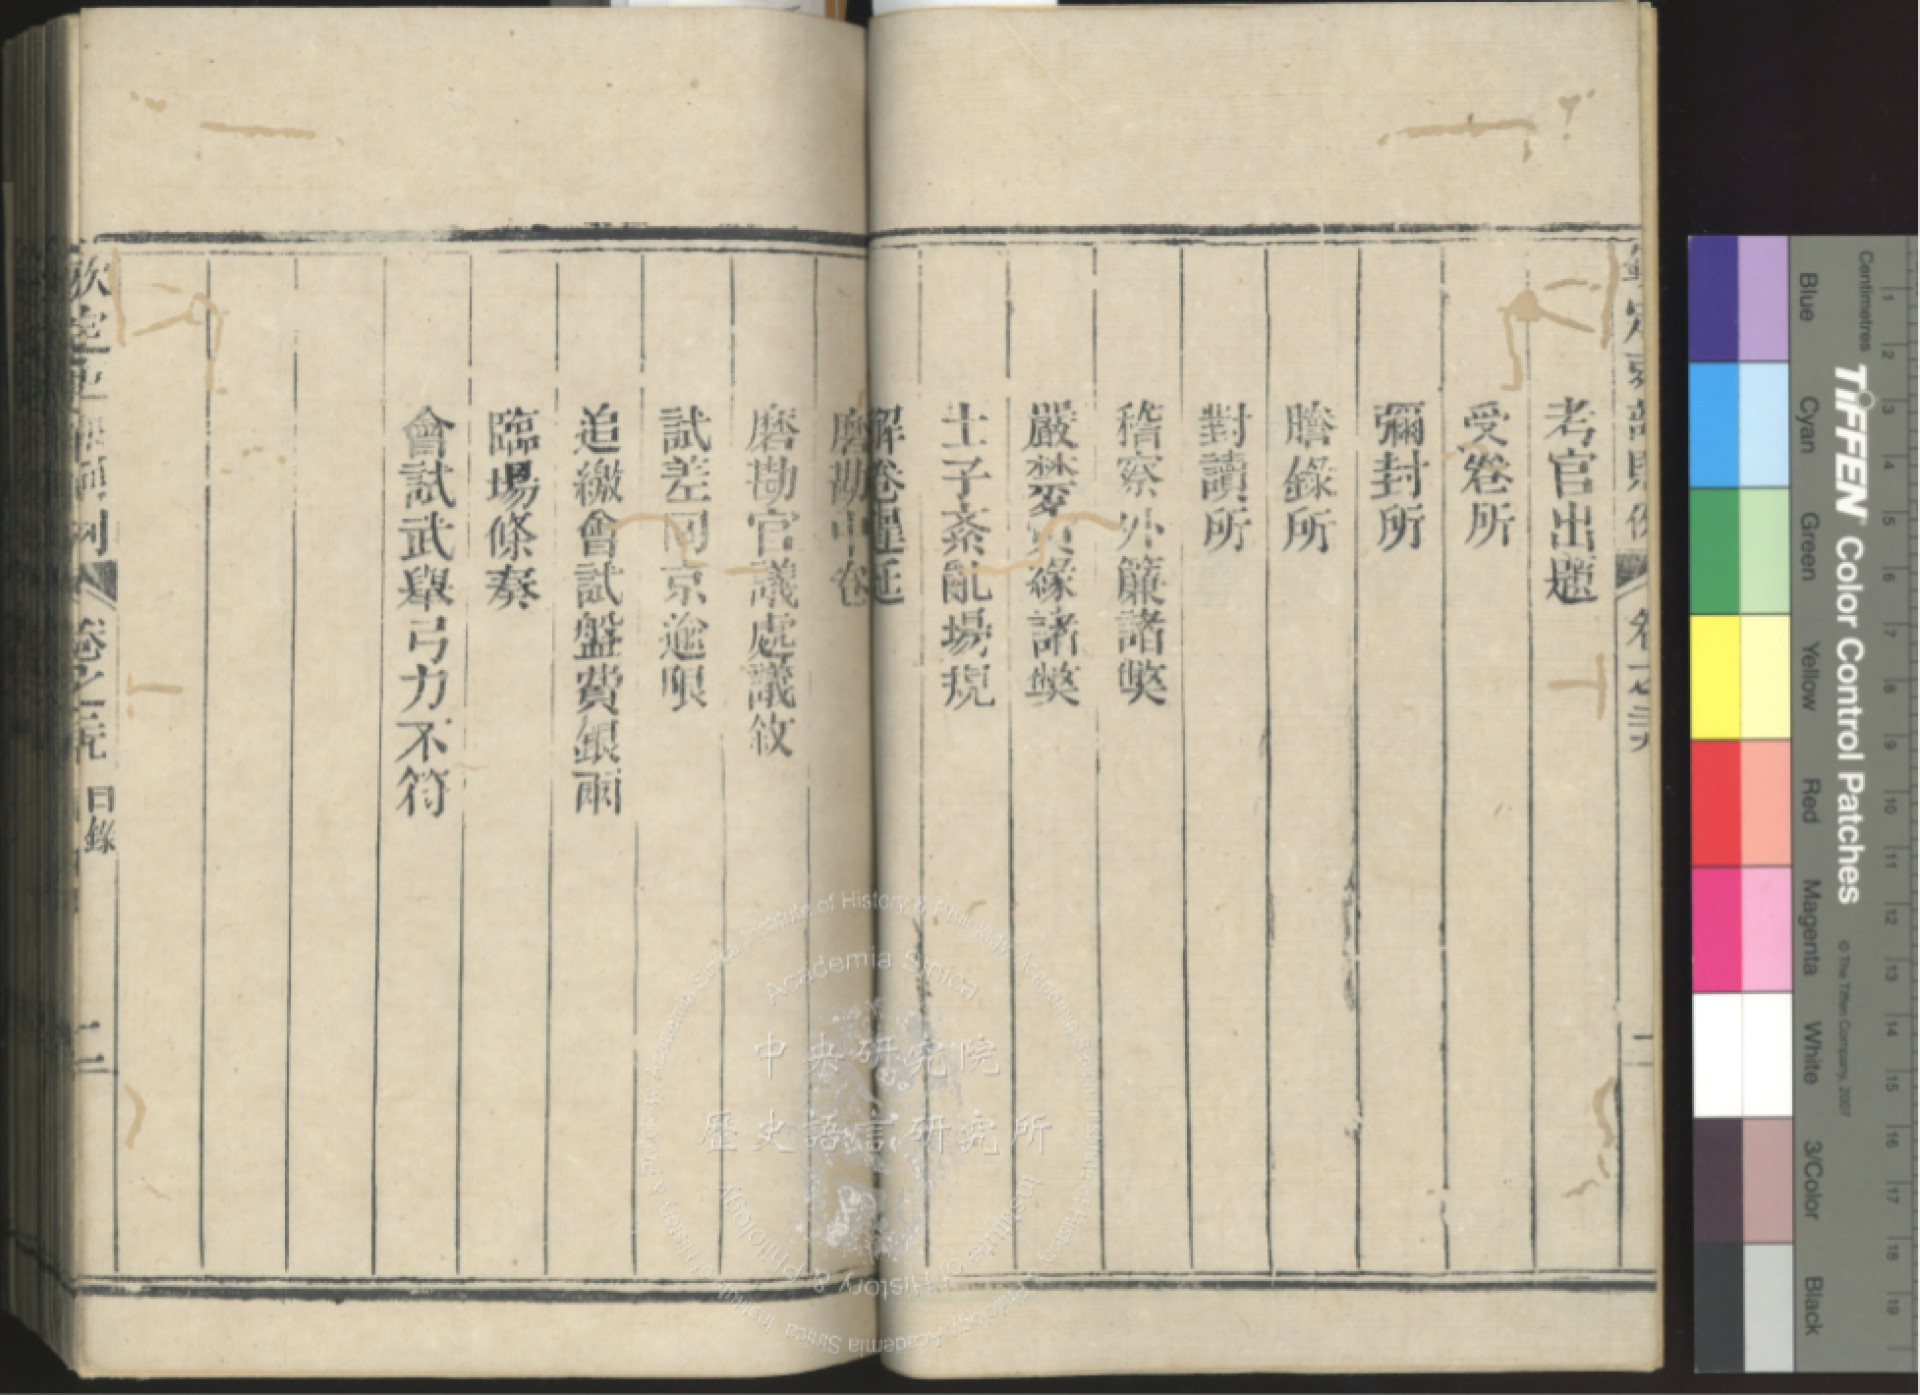 考官出題
受卷所
彌封所
謄錄所
對讀所
稽察外簾諸弊
嚴禁夤緣諸弊
士子紊亂場規
解卷遲延
磨勘中卷
磨勘官議處議敘
試差回京逾限
追繳會試盤費銀兩
臨場條奏
會試武舉弓力不符
欽定吏部則例
目錄
二
中央研究院
歷史語言研究所
Academia Sinica
Institute of History & Philology
Centimetres
TIFFEN Color Control Patches
© The Tiffen Company, 2007
Blue
Cyan
Green
Yellow
Red
Magenta
White
3/Color
Black
1
2
3
4
5
6
7
8
9
10
11
12
13
14
15
16
17
18
19